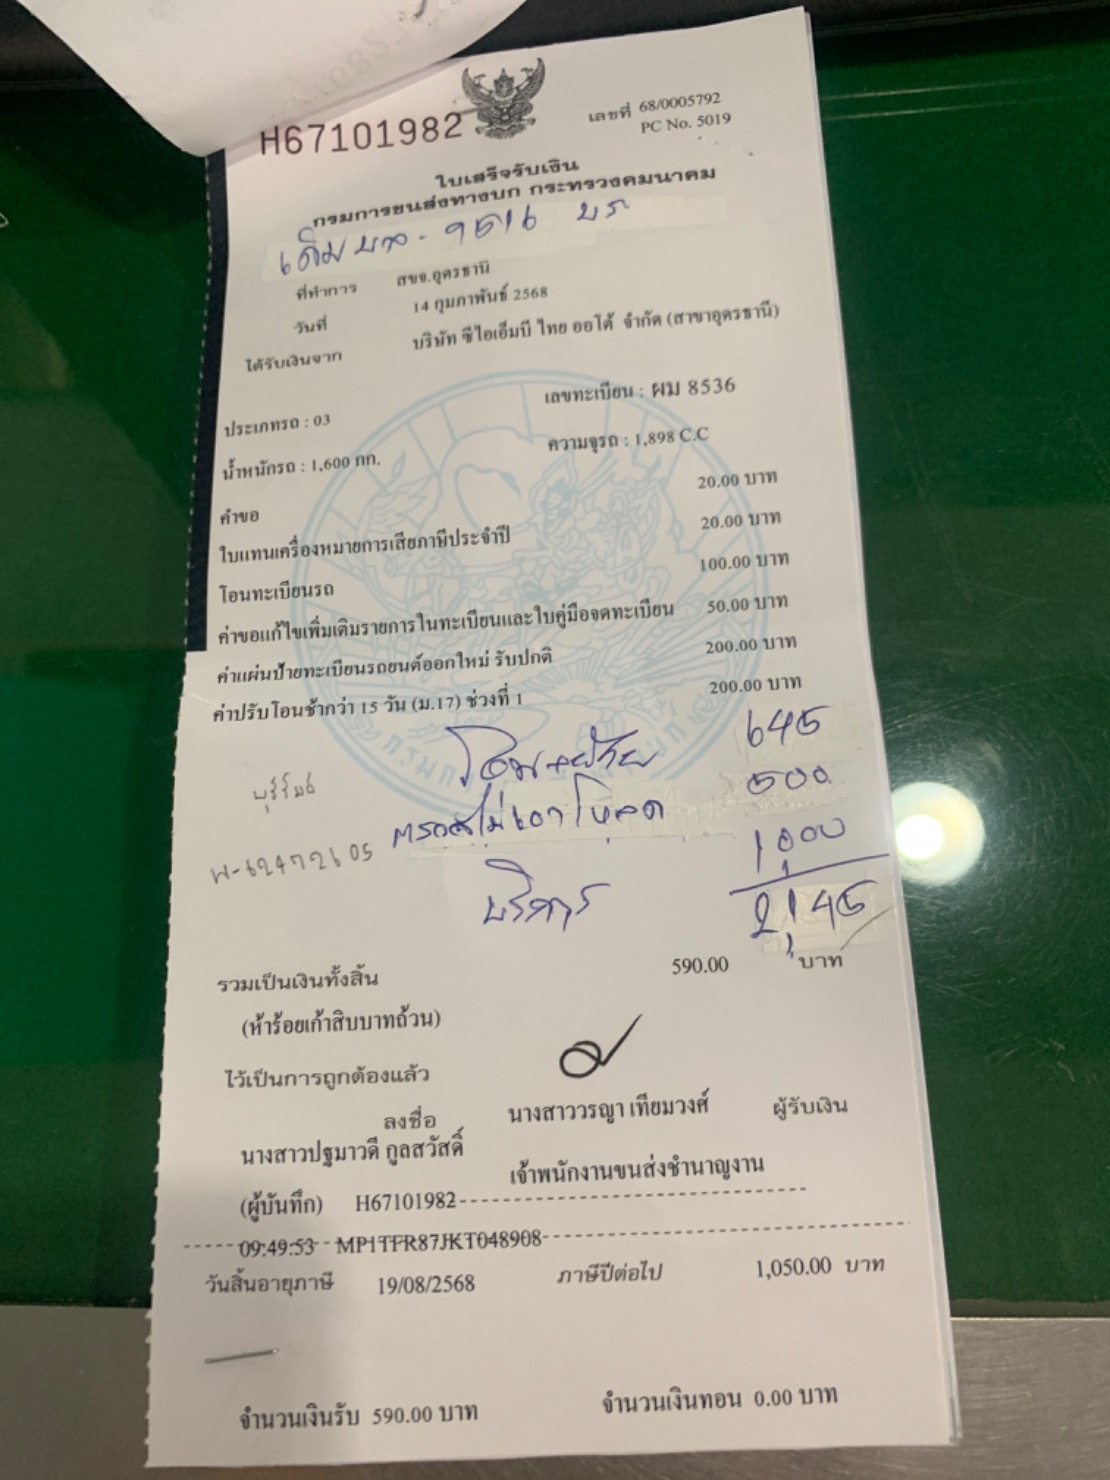 H67101982
เลขที่ 68/0005792
PC No. 5019
ใบเสร็จรับเงิน
กรมการขนส่งทางบก กระทรวงคมนาคม
เดิม บว - 9516 บร
ที่ทำการ สขจ.อุดรธานี
วันที่ 14 กุมภาพันธ์ 2568
ได้รับเงินจาก บริษัท ซีไอเอ็มบี ไทย ออโต้ จำกัด (สาขาอุดรธานี)
ประเภทรถ : 03 เลขทะเบียน : ผม 8536
น้ำหนักรถ : 1,600 กก. ความจุรถ : 1,898 C.C
คำขอ 20.00 บาท
ใบแทนเครื่องหมายการเสียภาษีประจำปี 20.00 บาท
โอนทะเบียนรถ 100.00 บาท
ค่าขอแก้ไขเพิ่มเติมรายการในทะเบียนและใบคู่มือจดทะเบียน 50.00 บาท
ค่าแผ่นป้ายทะเบียนรถยนต์ออกใหม่ รับปกติ 200.00 บาท
ค่าปรับโอนช้ากว่า 15 วัน (ม.17) ช่วงที่ 1 200.00 บาท
645
บุรีรัมย์ ตรวจไม่เอาโหลด 500
บริการ 1,000
2,145
รวมเป็นเงินทั้งสิ้น 590.00 บาท
(ห้าร้อยเก้าสิบบาทถ้วน)
ไว้เป็นการถูกต้องแล้ว
ลงชื่อ นางสาววรญา เทียมวงศ์ ผู้รับเงิน
นางสาวปฐมาวดี กูลสวัสดิ์ เจ้าพนักงานขนส่งชำนาญงาน
(ผู้บันทึก) H67101982
09:49:53 MP1TFR87JKT048908
วันสิ้นอายุภาษี 19/08/2568 ภาษีปีต่อไป 1,050.00 บาท
จำนวนเงินรับ 590.00 บาท จำนวนเงินทอน 0.00 บาท